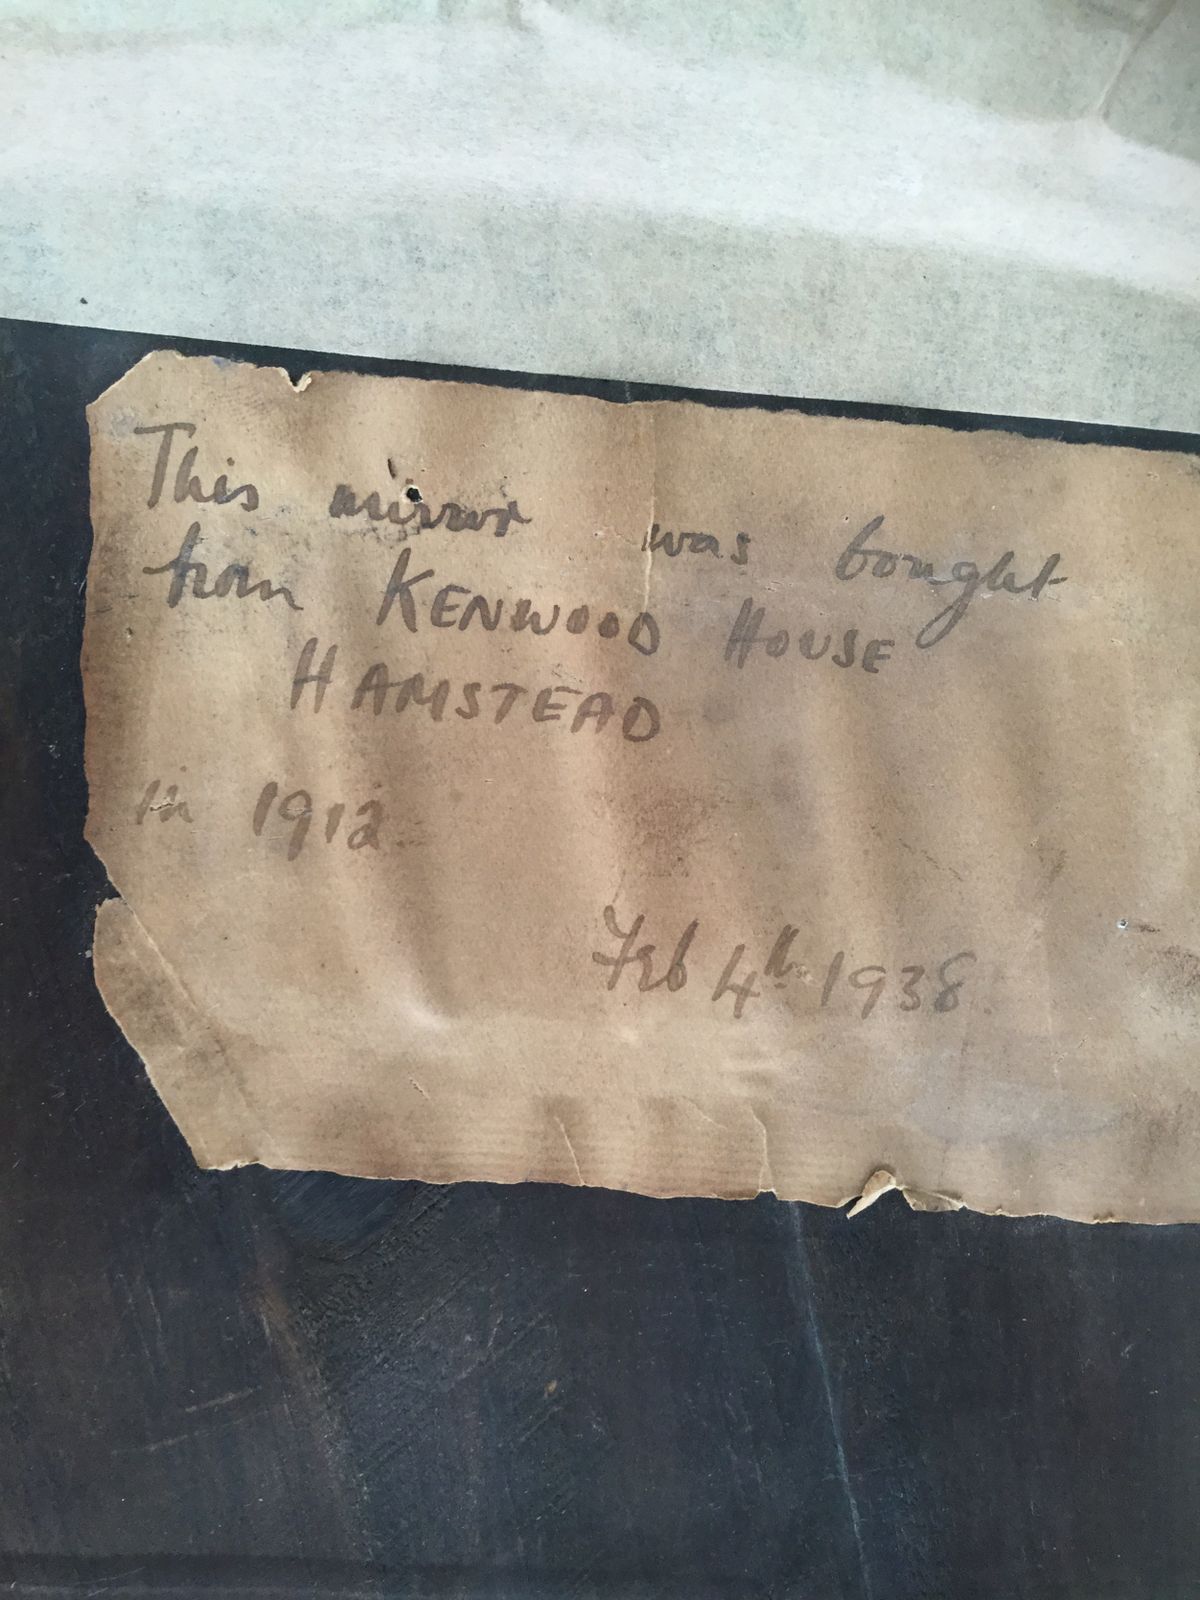 This mirror was bought
from KENWOOD HOUSE
HAMSTEAD
in 1912
Feb 4th 1938.